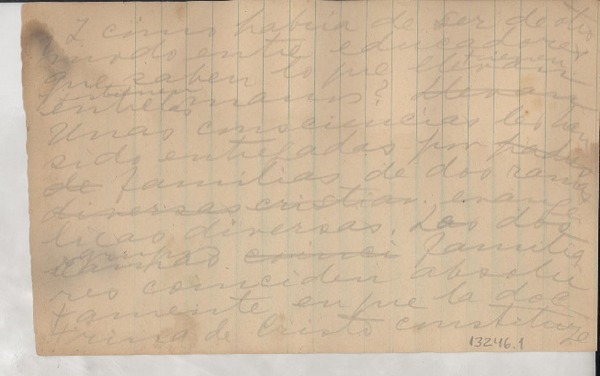 I cómo había de ser de otro
modo entre educadores
que saben lo que tienen
entre las manos?
Unas consciencias les han
sido entregadas por
familias de dos ramas
diversas cristian. evangé
licas diversas. Los dos
grupos familia
res coinciden absolu
tamente en que la doc
trina de Cristo constituye
13246.1